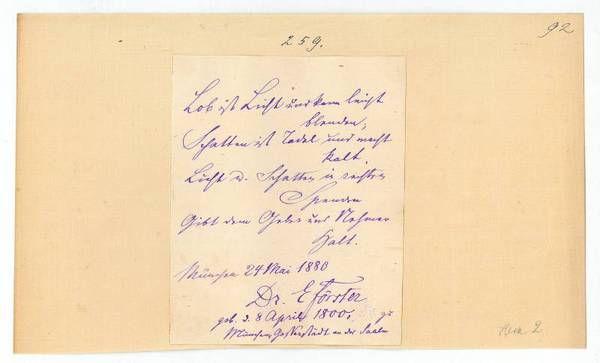 92
259.
Lob ist Licht und kann leicht
blenden;
Schatten ist Tadel und macht
kalt.
Licht u. Schatten in rechten
Spenden
Gibt dem Geber und Nehmer
Halt.
München 24 Mai 1880
Dr. E Förster
geb. d. 8 April 1800. zu
an der Saale
2